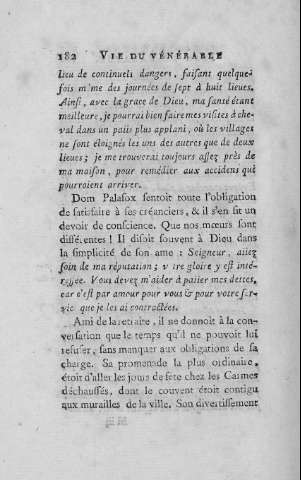 182 VIE DU VÉNÉRABLE
lieu de continuels dangers, faisant quelque-
fois m'me des journées de sept à huit lieues.
Ainsi, avec la grace de Dieu, ma santé étant
meilleure, je pourrai bien faire mes visites à che-
val dans un païis plus applani, où les villages
ne sont éloignés les uns des autres que de deux
lieues; je me trouverai toujours assez près de
ma maison, pour remédier aux accidens qui
pourroient arriver.
Dom Palafox sentoit toute l'obligation
de satisfaire à ses créanciers, & il s'en fit un
devoir de conscience. Que nos mœurs sont
différentes! Il disoit souvent à Dieu dans
la simplicité de son ame: Seigneur, aiiez
soin de ma réputation; v tre gloire y est inté-
ressée. Vous devez m'aider à païier mes dettes,
car c'est par amour pour vous & pour votre ser-
vice que je les ai contractées.
Ami de la retraite, il ne donnoit à la con-
versation que le temps qu'il ne pouvoit lui
refuser, sans manquer aux obligations de sa
charge. Sa promenade la plus ordinaire,
étoit d'aller les jours de fête chez les Carmes
déchaussés, dont le couvent étoit contigu
aux murailles de la ville. Son divertissement